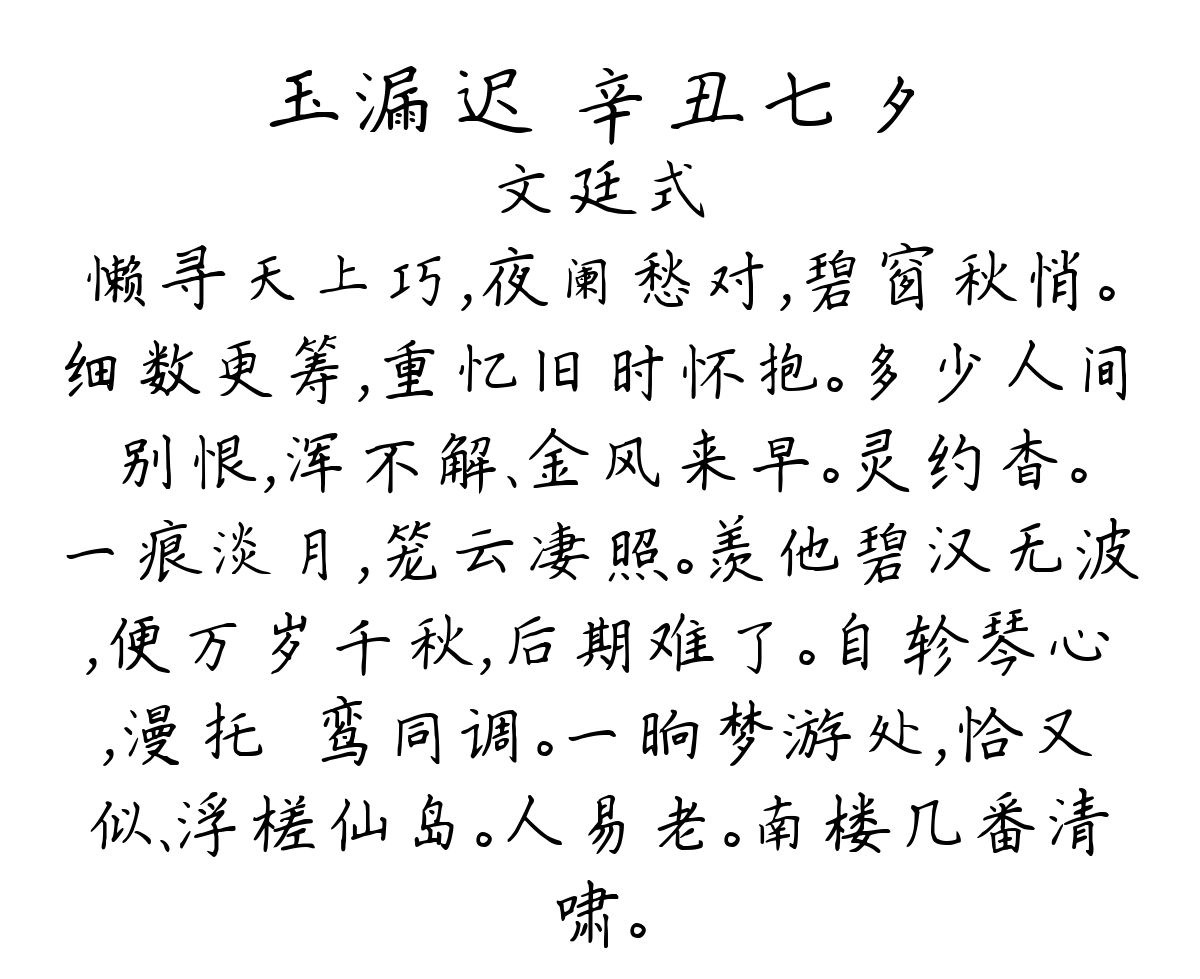 玉漏迟 辛丑七夕
文廷式
懒寻天上巧,夜阑愁对,碧窗秋悄。
细数更筹,重忆旧时怀抱。多少人间
别恨,浑不解、金风来早。灵约杳。
一痕淡月,笼云凄照。羡他碧汉无波
,便万岁千秋,后期难了。自轸琴心
,漫托 鸾同调。一晌梦游处,恰又
似、浮槎仙岛。人易老。南楼几番清
啸。